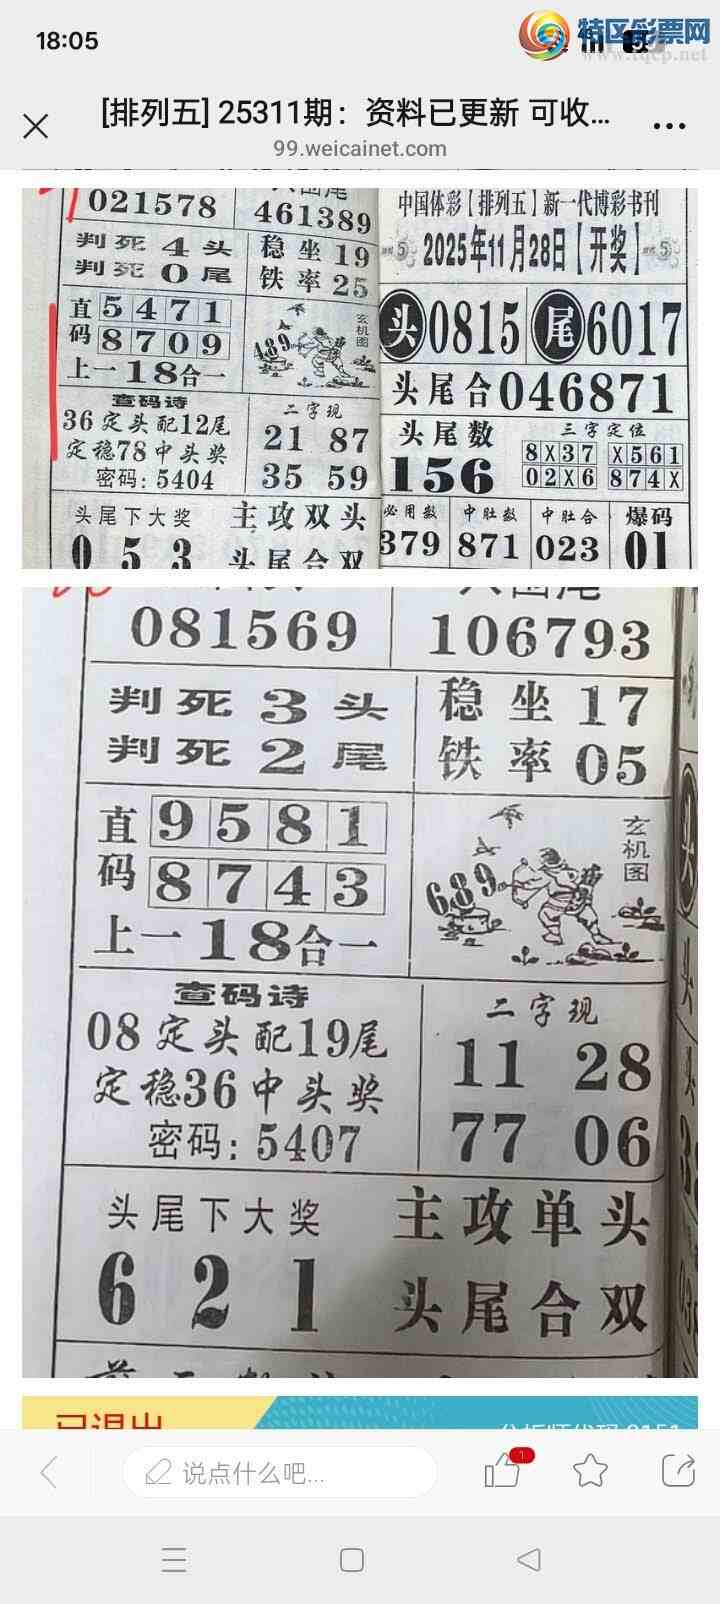 18:05
特区彩票网
www.tqcp.net
[排列五] 25311期：资料已更新 可收...
99.weicainet.com
021578
461389
判死4头
判死0尾
稳坐19
铁率25
直码
5471
8709
上一18合一
玄机图
489
查码诗
36定头配12尾
定稳78中头奖
密码：5404
二字现
21 87
35 59
头尾下大奖
053
主攻双头
头尾合双
中国体彩【排列五】新一代博彩书刊
2025年11月28日【开奖】
头0815
尾6017
头尾合046871
头尾数
156
三字定位
8X37 X561
02X6 874X
必用数
379
中肚数
871
中肚合
023
爆码
01
081569
106793
判死3头
判死2尾
稳坐17
铁率05
直码
9581
8743
上一18合一
玄机图
689
查码诗
08定头配19尾
定稳36中头奖
密码：5407
二字现
11 28
77 06
头尾下大奖
621
主攻单头
头尾合双
说点什么吧...
1